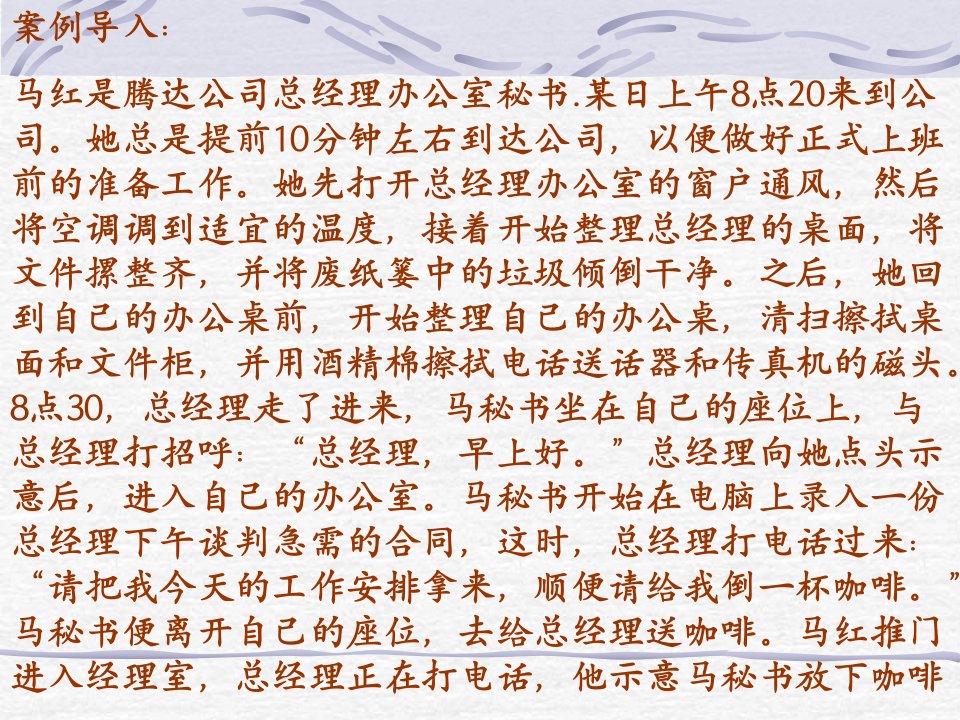 案例导入：
马红是腾达公司总经理办公室秘书.某日上午8点20来到公
司。她总是提前10分钟左右到达公司，以便做好正式上班
前的准备工作。她先打开总经理办公室的窗户通风，然后
将空调调到适宜的温度，接着开始整理总经理的桌面，将
文件摞整齐，并将废纸篓中的垃圾倾倒干净。之后，她回
到自己的办公桌前，开始整理自己的办公桌，清扫擦拭桌
面和文件柜，并用酒精棉擦拭电话送话器和传真机的磁头。
8点30，总经理走了进来，马秘书坐在自己的座位上，与
总经理打招呼：“总经理，早上好。”总经理向她点头示
意后，进入自己的办公室。马秘书开始在电脑上录入一份
总经理下午谈判急需的合同，这时，总经理打电话过来：
“请把我今天的工作安排拿来，顺便请给我倒一杯咖啡。”
马秘书便离开自己的座位，去给总经理送咖啡。马红推门
进入经理室，总经理正在打电话，他示意马秘书放下咖啡